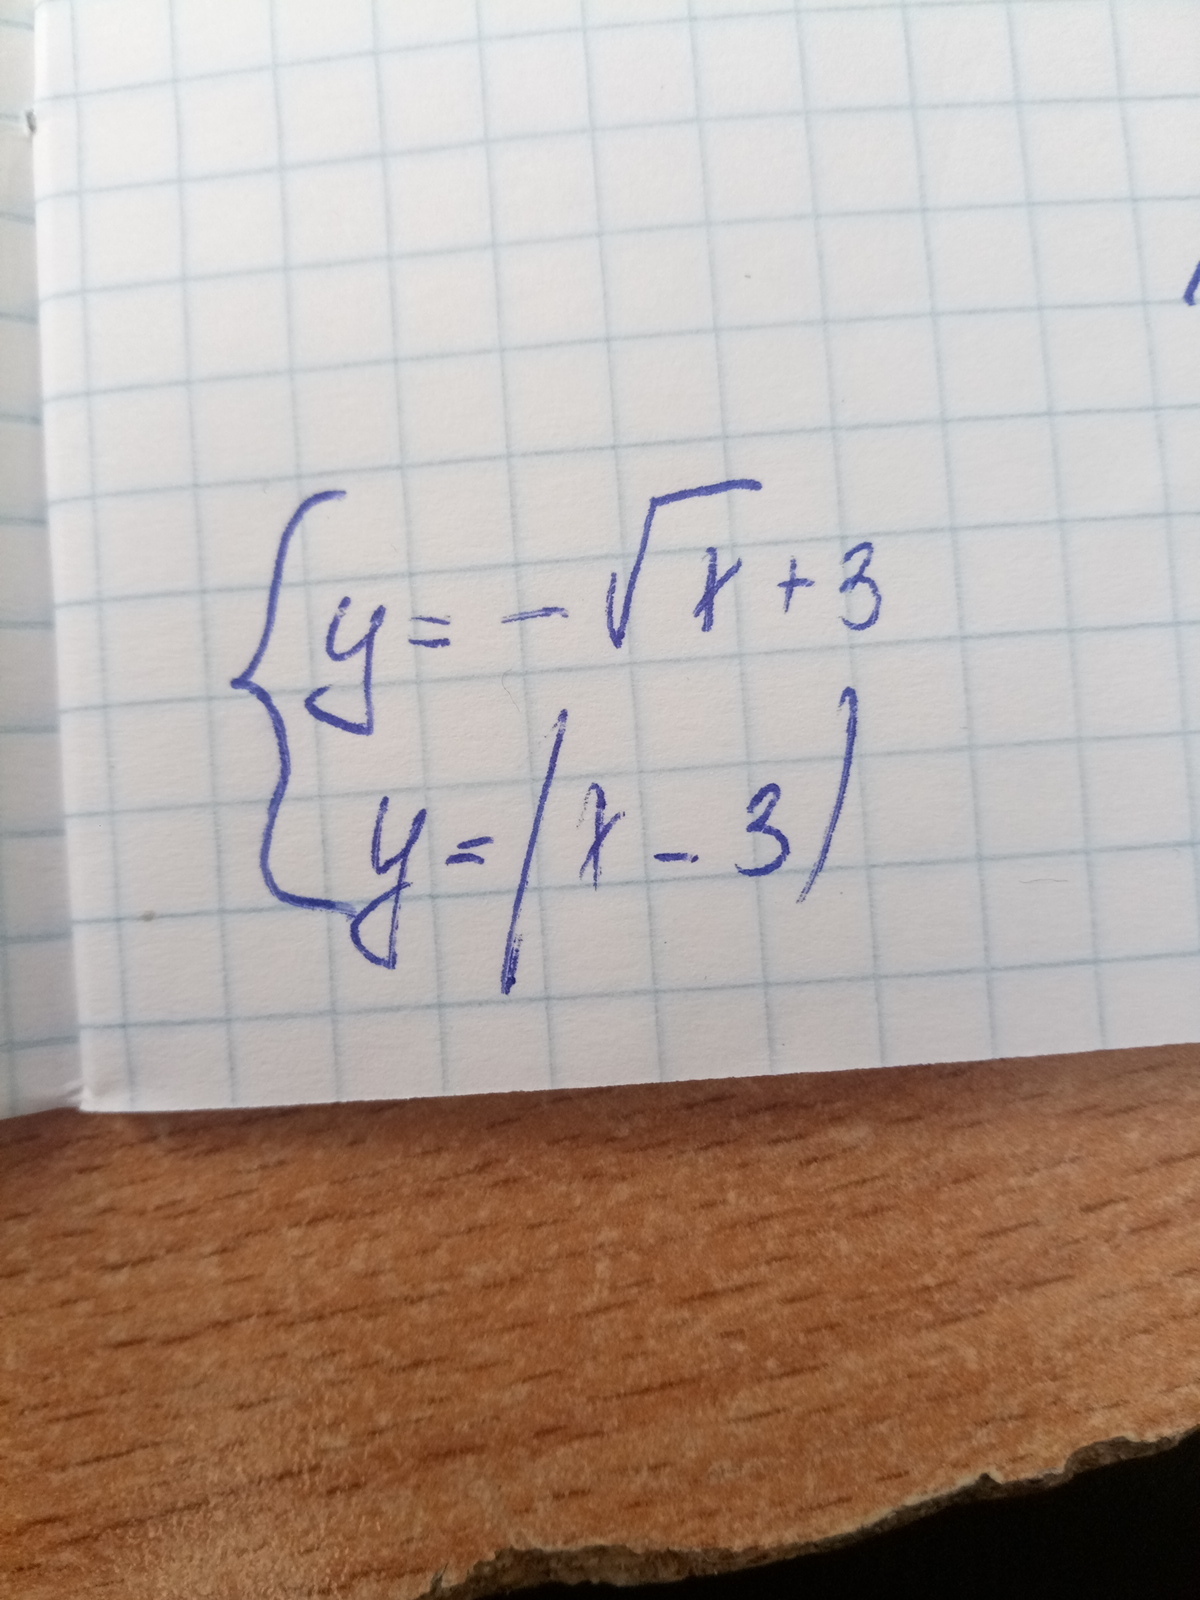 { y = - √x + 3
y = |x - 3|